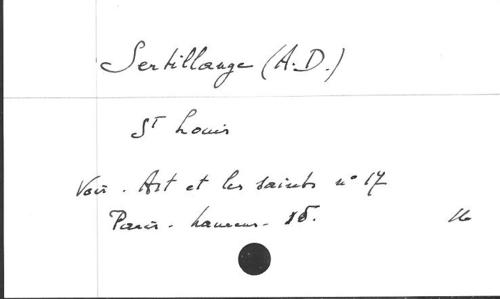 Sertillange (A.D.)
St Louis
Voir. Art et les saints n° 17
Paris - Laurens - 18.